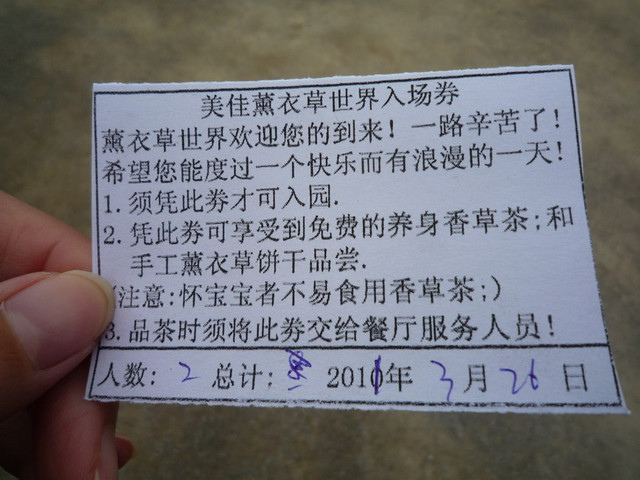 美佳薰衣草世界入场券
薰衣草世界欢迎您的到来！一路辛苦了！
希望您能度过一个快乐而有浪漫的一天！
1.须凭此券才可入园.
2.凭此券可享受到免费的养身香草茶;和
手工薰衣草饼干品尝.
(注意:怀宝宝者不易食用香草茶;)
3.品茶时须将此券交给餐厅服务人员！
人数: 2 总计: 2011年 3月 26日